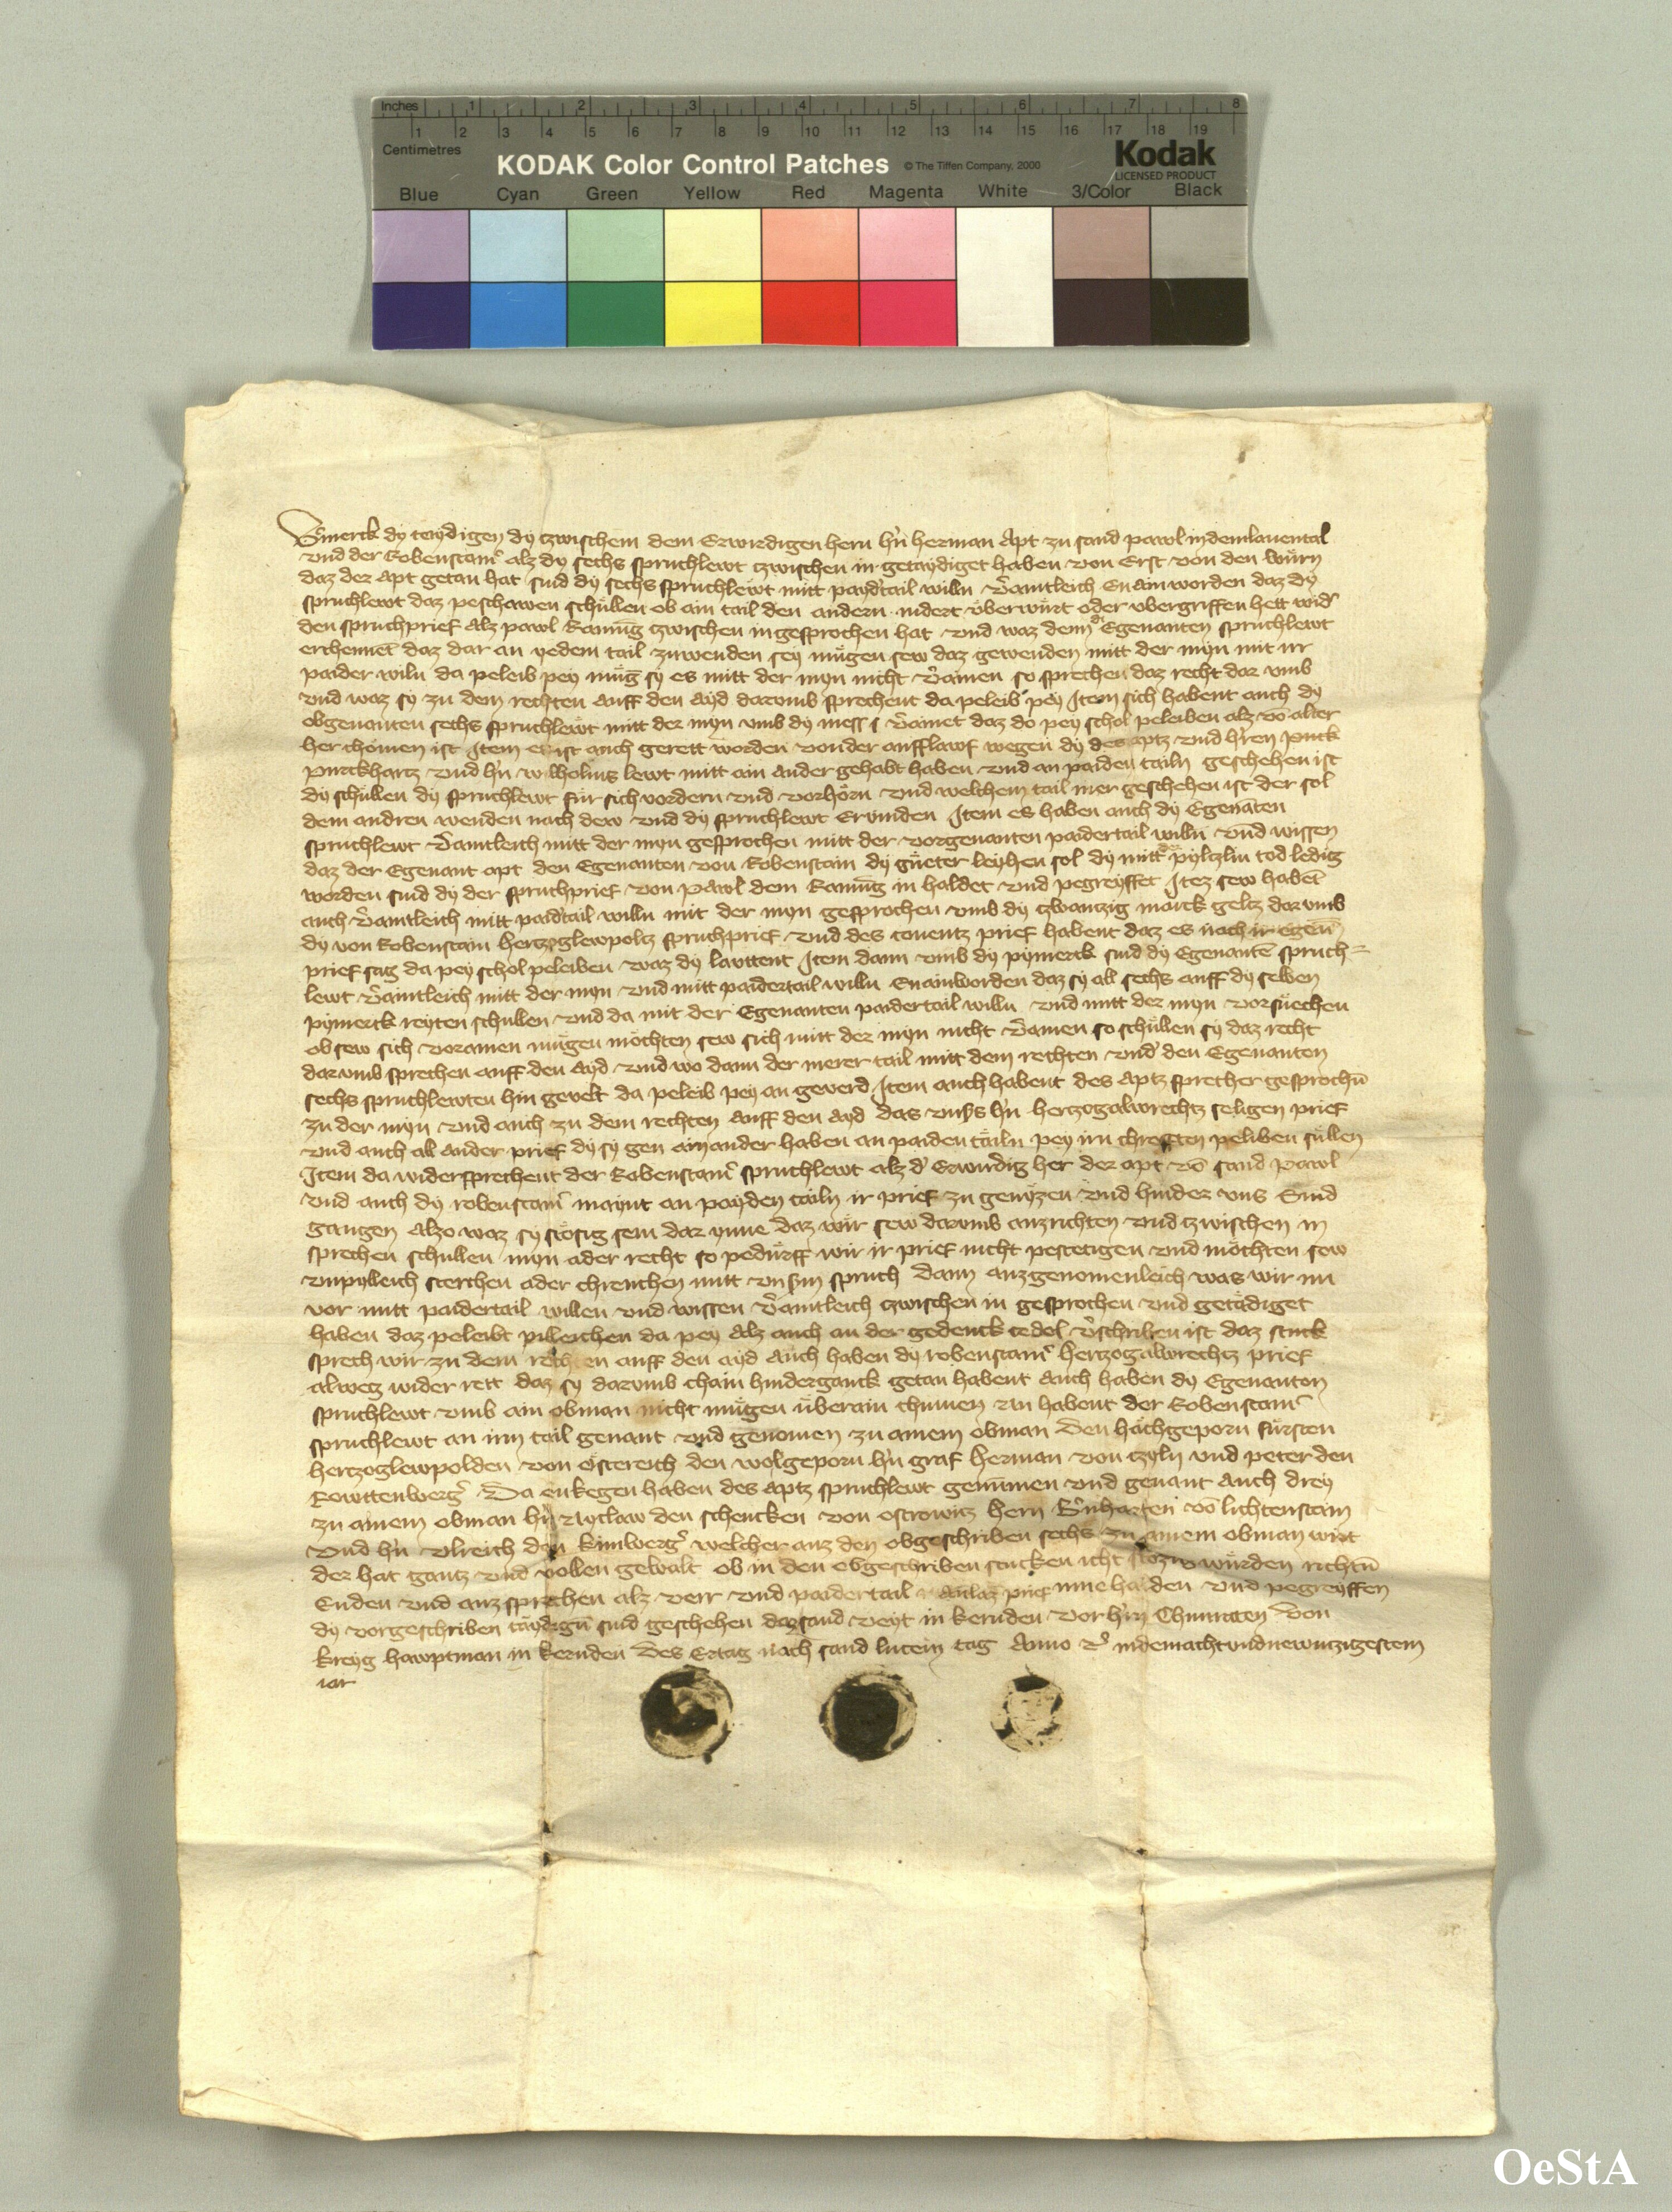 Inches 1 2 3 4 5 6 7 8
1 2 3 4 5 6 7 8 9 10 11 12 13 14 15 16 17 18 19
Centimetres
KODAK Color Control Patches © The Tiffen Company, 2000 Kodak
LICENSED PRODUCT
Blue Cyan Green Yellow Red Magenta White 3/Color Black
Vermerck dy taydigen dy tzwischem dem Erwirdigen hern h'n herman Apt zu sand pawol in dem lauental
vnd der Robenstain' alz dy sechs spruchlewt tzwischen in getaydiget haben von Erst von den würn
daz der Apt getan hat sind dy sechs spruchlewt mitt payd'tail willn v'aintleich En ain worden daz dy
spruchlewt daz peschawen schüllen ob ain tail den andern indert überwürt oder vbergriffen hett wid'
den spruchprief Alz pawl Raming tzwischen in gesprochen hat vnd waz denn d' Egenanten spruchlewt
erchennet daz dar an yedem tail zuwenden sey mügen sew daz gewenden mitt der myn mit irr
paider wiln da peleib pey müg sy es mitt der myn nicht v'ainen so sprechen daz recht dar vmb
vnd waz sy zu dem rechten auff den ayd darvmb sprechent da peleib pey Item sich habent auch dy
obgenanten sechs spruchlewt mitt der myn vmb dy mess v'ainet daz do pey schol peleiben alz vo alter
her chomen ist Item es ist auch gerett worden von der aufflawf wegen dy des aptz vnd h'ren
purckhartz vnd h'n wilholms lewt mitt ain ander gehabt haben vnd an paiden tailn geschehen ist
dy schüllen dy spruchlewt für sich vordern vnd vorhörn vnd welchem tail mer geschehen ist der sol
dem andren wenden nach dew vnd dy spruchlewt Ervinden Item es haben auch dy Egenaten
spruchlewt v'aintleich mitt der myn gesprochen mitt der vorgenanten paidertail willn vnd wissen
daz der Egenant apt den Egenanten von Robenstain dy güeter leyhen sol dy mitt pyltzlin tod ledig
worden sind dy der spruchprief von pawol dem Raming in haldet vnd pegreyffet Itez sew habet
auch v'aintleich mitt paid'tail willn mit der myn gesprochen vmb dy tzwantzig marck geltz dar vmb
dy von Robenstain hertzoglewpoltz spruchprief vnd des conentz prief habent daz es nach ir egen
prief sag da pey schol peleiben waz dy lauttent Item dann vmb dy pymerck sind dy Egenante spruch=
lewt v'aintleich mitt der myn vnd mitt paidertail willn En ain worden daz sy all sechs auff dy selben
pymerck reyten schullen vnd da mit der Egenanten paidertail willn vnd mitt der myn vorsüechen
ob sew sich voramen mügen möchten sew sich mitt der myn nicht v'ainen so schüllen sy daz recht
darvmb sprechen auff den ayd vnd wo dann der merer tail mitt dem rechten vnd' den Egenanten
sechs spruchlewten hin gevelt da peleib pey an geverd Item auch habent des aptz sprecher gesprochn
zu der myn vnd auch zu dem rechten auff den ayd das vnss h'n hertzogalwrechtz seligen prief
vnd auch all ander prief dy sy gen ain ander haben an paiden tailn pey irn chreften peliben süllen
Item da widersprechent der Rabenstain' spruchlewt alz d' Erwirdig her der apt vo sand pawl
vnd auch dy robenstain' maint an payden tailn ir prief zu genyzen vnd hinder vns sind
gangen Alzo waz sy stösig sein dar ynne daz wir sew darvmb auzrichten vnd tzwischen in
sprechen schullen myn ader recht so pedürff wir ir prief nicht pestetigen vnd möchten sew
vnpylleich sterchen ader chrenchen mitt vnsm spruch dann auzgenomenleich was wir in
vor mitt paidertail willen vnd wissen v'aintleich tzwischen in gesprochen vnd getädiget
haben daz peleibt pilleichen da pey Alz auch an der gedenck cedel v'schriben ist daz stuck
sprech wir zu dem rechten auff den ayd Auch haben dy robenstain' hertzogalwrechtz prief
alwetz wider rett daz sy darvmb chain hinderganck getan habent Auch haben dy Egenanten
spruchlewt vmb ain obman nicht mügen überain chumen habent der Robenstain'
spruchlewt an irm tail genant vnd genomen zu ainem obman den hachgeporn fürsten
hertzoglewpolden von östereich den wolgeporn h'n graf herman von tzyly vnd peter den
Rewttenberg' Da enkegen haben des aptz spruchlewt genumen vnd genant auch drey
zu ainem obman h'n den schencken von ostrowitz hern vo lichtenstain
vnd h'n vlreich den welcher auz den obgeschriben sechs zu ainem obman wirt
der hat gantz vnd vollen gewalt ob in den obgeschriben stucken icht würden richtn
Enden vnd auz sprechen alz verr vnd paidertail Anlaz prief inne halden vnd pegreyffen
dy vorgeschriben täydign sind geschehen daz sand veyt in kernden vor h'rn Chunraten von
kreyg hawptman in kernden des Ertag nach sand lucein tag Anno in dem acht vnd newntzigestem
iar
OeStA